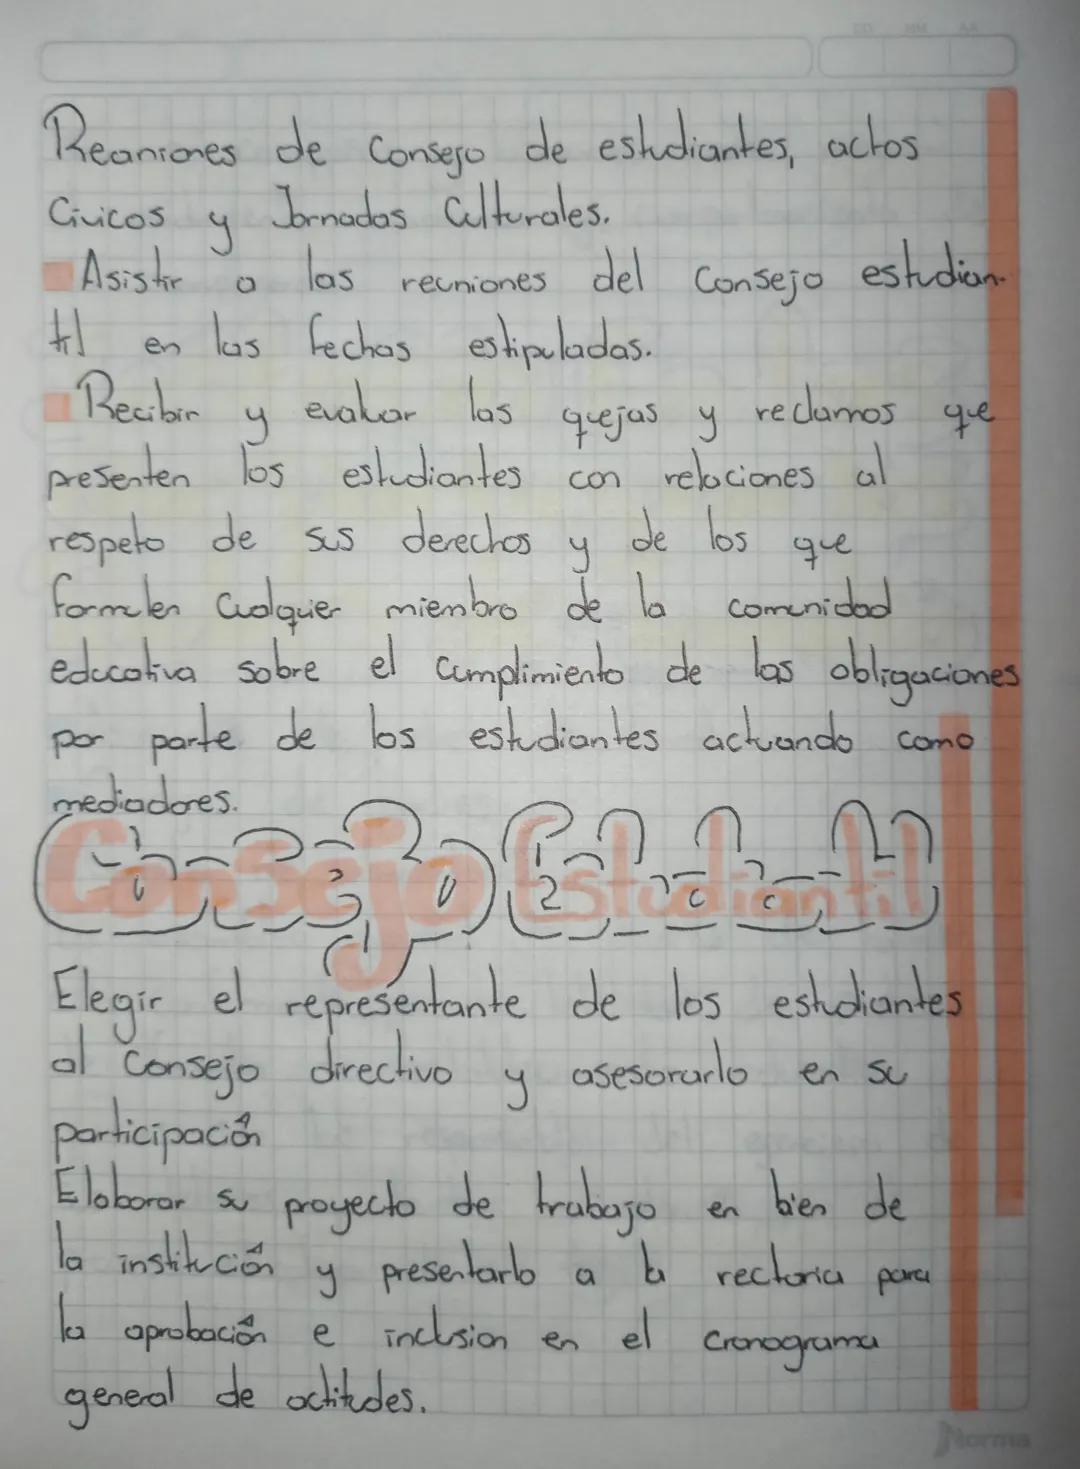 DD MM AA
Reaniones de Consejo de estudiantes, actos
Civicos y Jornadas Culturales.
Asistir a las reuniones del Consejo estudian-
til en las fechas estipuladas.
Recibir y evaluar las quejas y reclamos que
presenten los estudiantes con relaciones al
respeto de sus derechos y de los que
formulen Cualquier miembro de la comunidad
educativa sobre el Cumplimiento de las obligaciones
por parte de los estudiantes actuando como
mediadores.
Consejo Estudiantil
Elegir el representante de los estudiantes
al Consejo directivo y asesorarlo en su
participación
Elaborar su proyecto de trabajo en bien de
la institución y presentarlo a la rectoria para
la aprobación e inclusion en el Cronograma
general de actitudes.
Norma